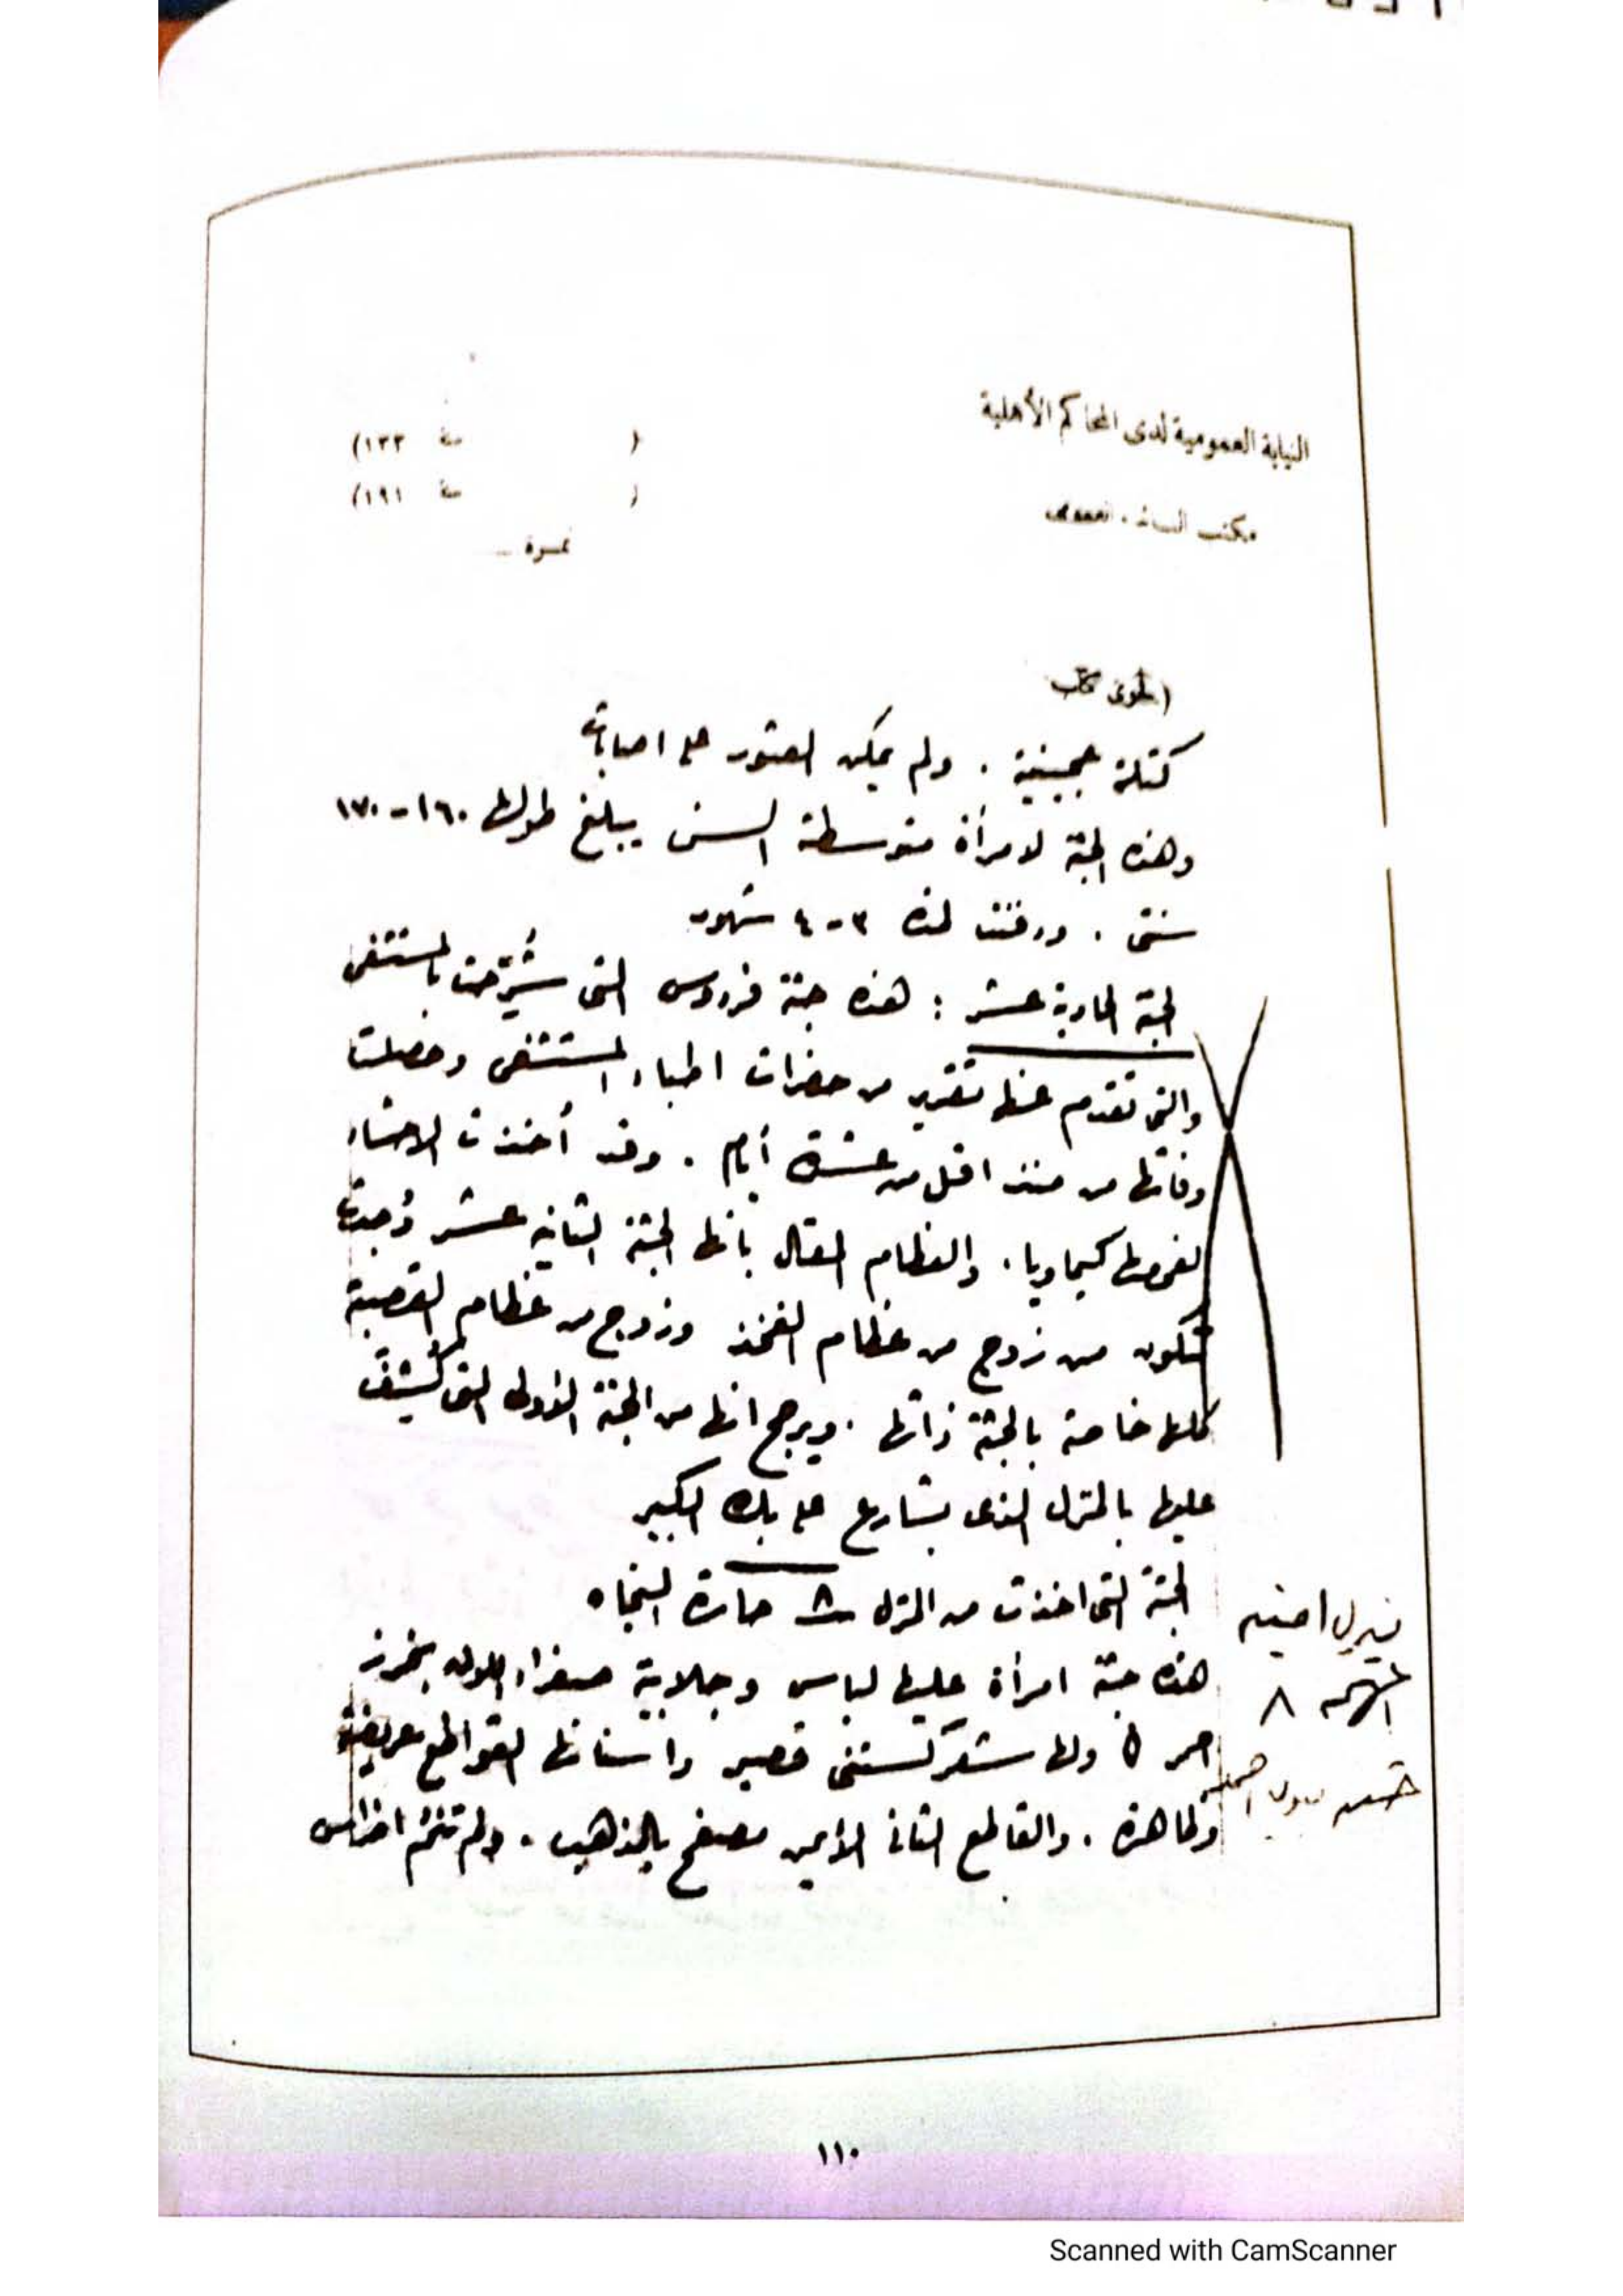 النيابة العمومية لدى المحاكم الأهلية
( سنة ١٣٣)
( سنة ١٩١)
نمرة
كتلة عجينية . ولم يمكن العثور على اصابات
وهذه الجثة لامرأة متوسطة السن يبلغ طولها ١٦٠-١٧٠
سنتى . ودفنت لمدة ٣-٤ شهور
الجثة الحادية عشر : هذه جثة فردوس التى شُرّحت بالمستشفى
والتى تقدم عنها تقرير من حضرات اطباء المستشفى وحصلت
وفاتها من منذ اقل من عشرة أيام . وقد أخذت الاحشاء
لفحصها كيماويا . والعظام المقال بأنها الجثة الثانية عشر وُجدت
تتكون من زوج من عظام الفخذ وزوج من عظام القصبة
كلها خاصة بالجثة ذاتها . ويرجح انها من الجثة الاولى التى كُشفت
عليها بالمنزل الذى بشارع على بك الكبير
الجثة التى اخذت من المنزل ٨ حارة النجاه
هذه جثة امرأة عليها لباس وجلابية صفراء اللون بخرز
احمر ولها شعر كستنى قصير وأسنانها القواطع عريضة
وظاهرة . والقاطع الثانى الأيمن مصفح بالذهب . ولم تنم اضراس
امينه
٨
١١٠
Scanned with CamScanner